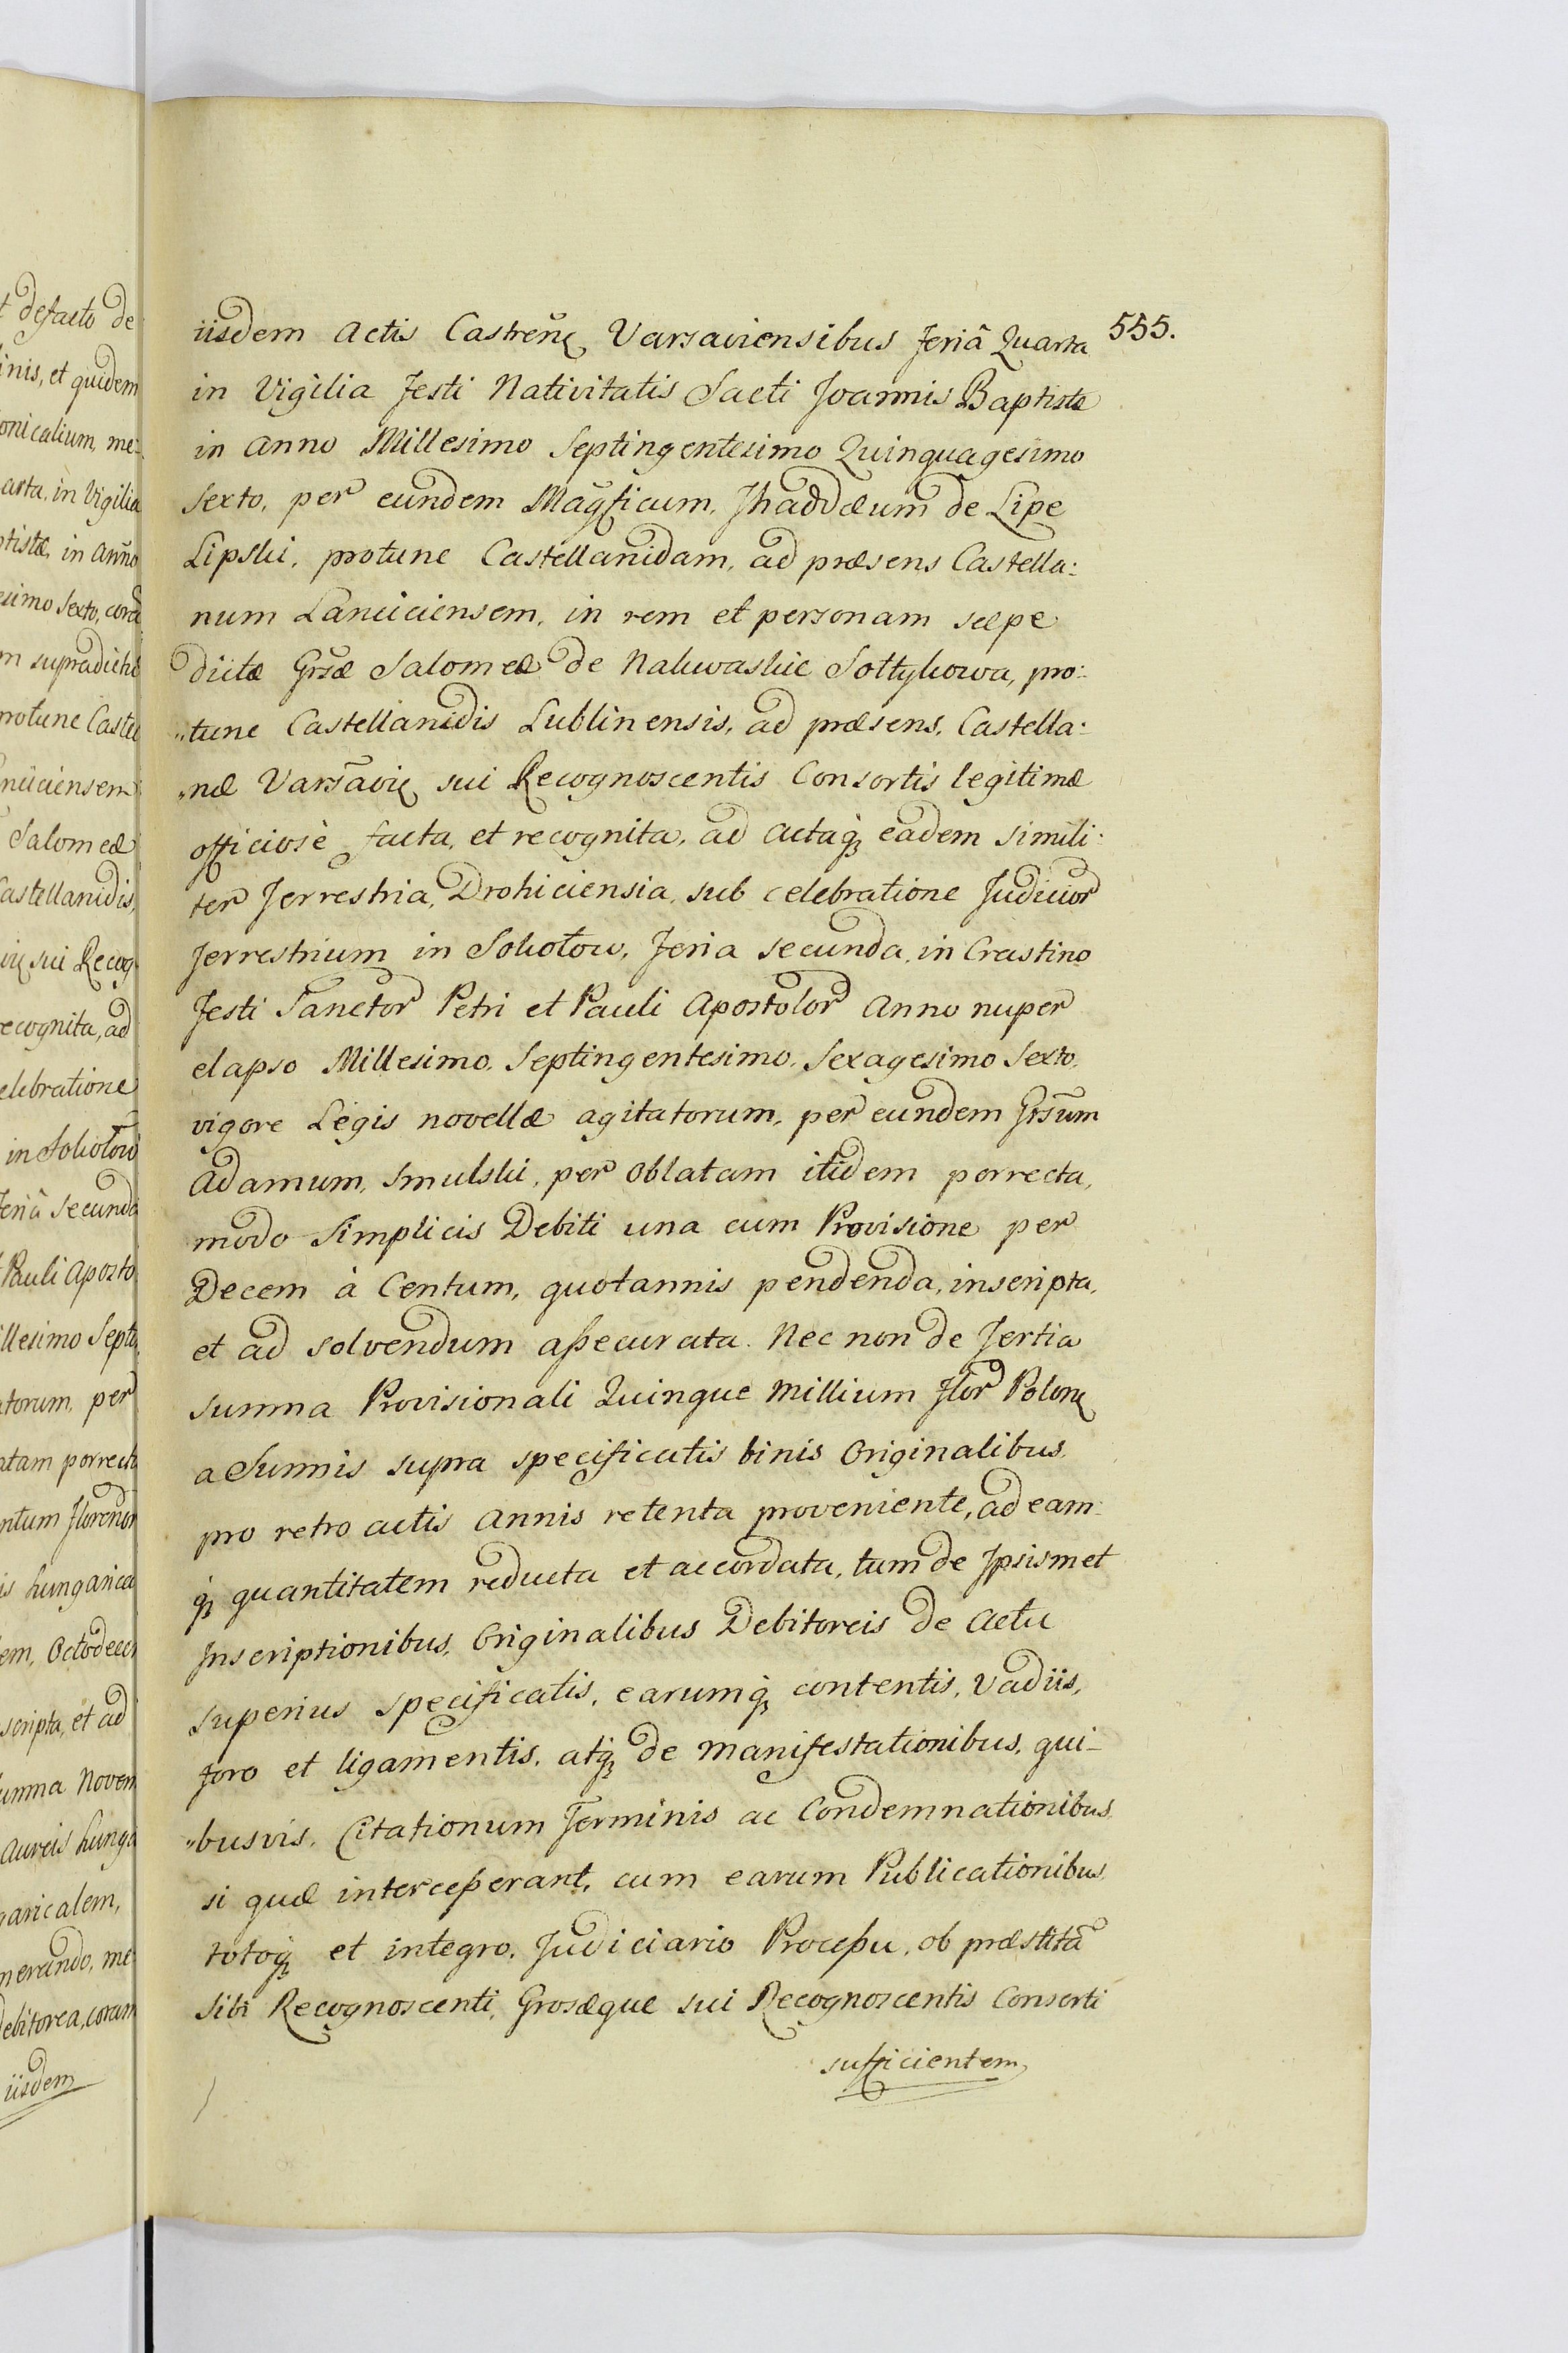 t defacto de
inis, et quidem
onicalium, me:
arta, in Vigilia
tistæ, in Anño
esimo Sexto, corã
m supradicto
protunc Castel
nciciensem
Salomeæ
Castellanidis,
sui Recog
recognita, ad
elebratione
in Sokołow
feriâ Secundâ
Pauli Aposto
llesimo Septi
atorum, per
atam porrecta
ntum Florenor
is hungarica
em, Octodecim
scripta, et ad
umma Novem
Aureis hunga
garicalem,
merando, me
Debitorea, coram
iisdem
555.
iisdem Actis Castreñ Varsaviensibus feriâ Quarta
in Vigilia festi Nativitatis Sacti Joannis Baptistæ
in Anno Millesimo Septingentesimo Quinquagesimo
Sexto, per eundem Magficum, Thaddæum de Lipe
Lipski, protunc Castellanidam, ad præsens Castella:
num Lanciciensem, in rem et personam sæpe
dictæ Grsæ Salomeæ de Nakwaskie Sołtykowa, pro:
„tunc Castellanidis Lublinensis, ad præsens, Castella:
„næ Varsavię sui Recognoscentis Consortis legitimæ
officiosè facta, et recognita, ad actaq3 eadem simili:
ter Terrestria, Drohiciensia, sub celebratione Judicior
Terrestrium in Sokołow, feria secunda, in Crastino
festi Sanctor Petri et Pauli Apostolor Anno nuper
elapso Millesimo, Septingentesimo, Sexagesimo Sexto,
vigore Legis novellæ agitatorum, per eundem Grsum
Adamum, Smulski, per Oblatam itidem porrecta,
modo Simplicis Debiti una cum Provisione per
Decem à Centum, quotannis pendenda, inscripta,
et ad solvendum aßecurata. Nec non de Tertia
summa Provisionali Quinque Millium flor Polonę
a Summis supra specificatis binis Originalibus
pro retro actis Annis retenta proveniente, ad eam:
q3 quantitatem reducta et accordata, tum de Ipsismet
Inscriptionibus, Originalibus Debitoreis de Actu
superius specificatis, earumq3 contentis, Vadiis,
foro et ligamentis, atq3 de Manifestationibus, qui-
„busvis, Citationum Terminis ac Condemnationibus
si quæ interceßerant, cum earum Publicationibus
totoq3 et integro, Judiciario Proceßu, ob præstitã
sibi Recognoscenti, Grosæque sui Recognoscentis Consorti
sufficientem